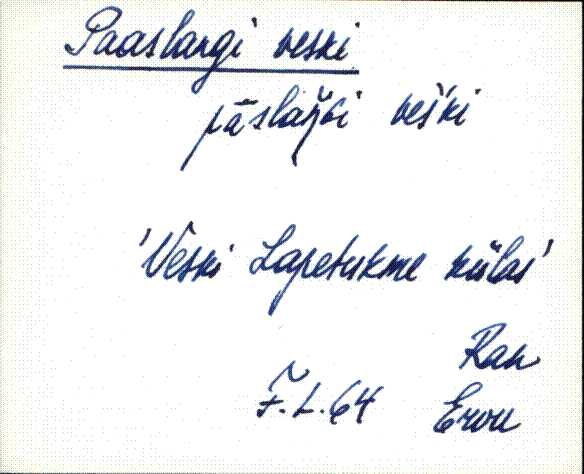 Paaslangi veski
pāslaŋ̆ɢi veśki
'Veski Lapetukme külas'
Ran
F.L.64 Ervu